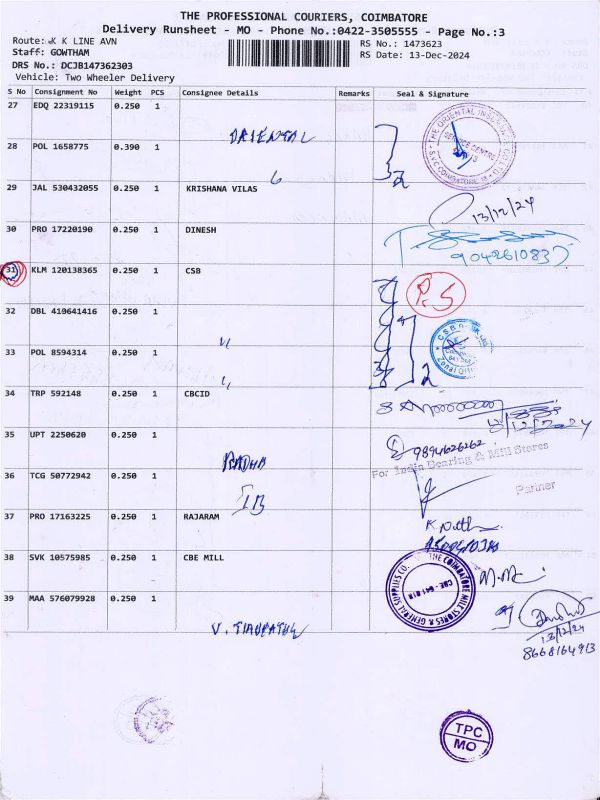 THE PROFESSIONAL COURIERS, COIMBATORE
Delivery Runsheet - MO - Phone No.:0422-3505555 - Page No.:3
Route: K K LINE AVN
Staff: GOWTHAM
DRS No.: DCJB147362303
Vehicle: Two Wheeler Delivery
RS No.: 1473623
RS Date: 13-Dec-2024
S No Consignment No Weight PCS Consignee Details Remarks Seal & Signature
27 EDQ 22319115 0.250 1
ORIENTAL
28 POL 1658775 0.390 1
29 JAL 530432055 0.250 1 KRISHANA VILAS
13/12/24
30 PRO 17220190 0.250 1 DINESH
9042610837
31 KLM 120138365 0.250 1 CSB
P.S
32 DBL 410641416 0.250 1
33 POL 8594314 0.250 1
2
34 TRP 592148 0.250 1 CBCID
35 UPT 2250620 0.250 1
RADHA
9894626262
For India Bearing & Mill Stores
36 TCG 50772942 0.250 1
IB
Partner
37 PRO 17163225 0.250 1 RAJARAM
38 SVK 10575985 0.250 1 CBE MILL
THE COIMBATORE MILL STORES & GENERAL SUPPLIES CO.
CBE - 641 018
39 MAA 576079928 0.250 1
V. TIRUPATHI
13/12/24
8668164913
TPC
MO